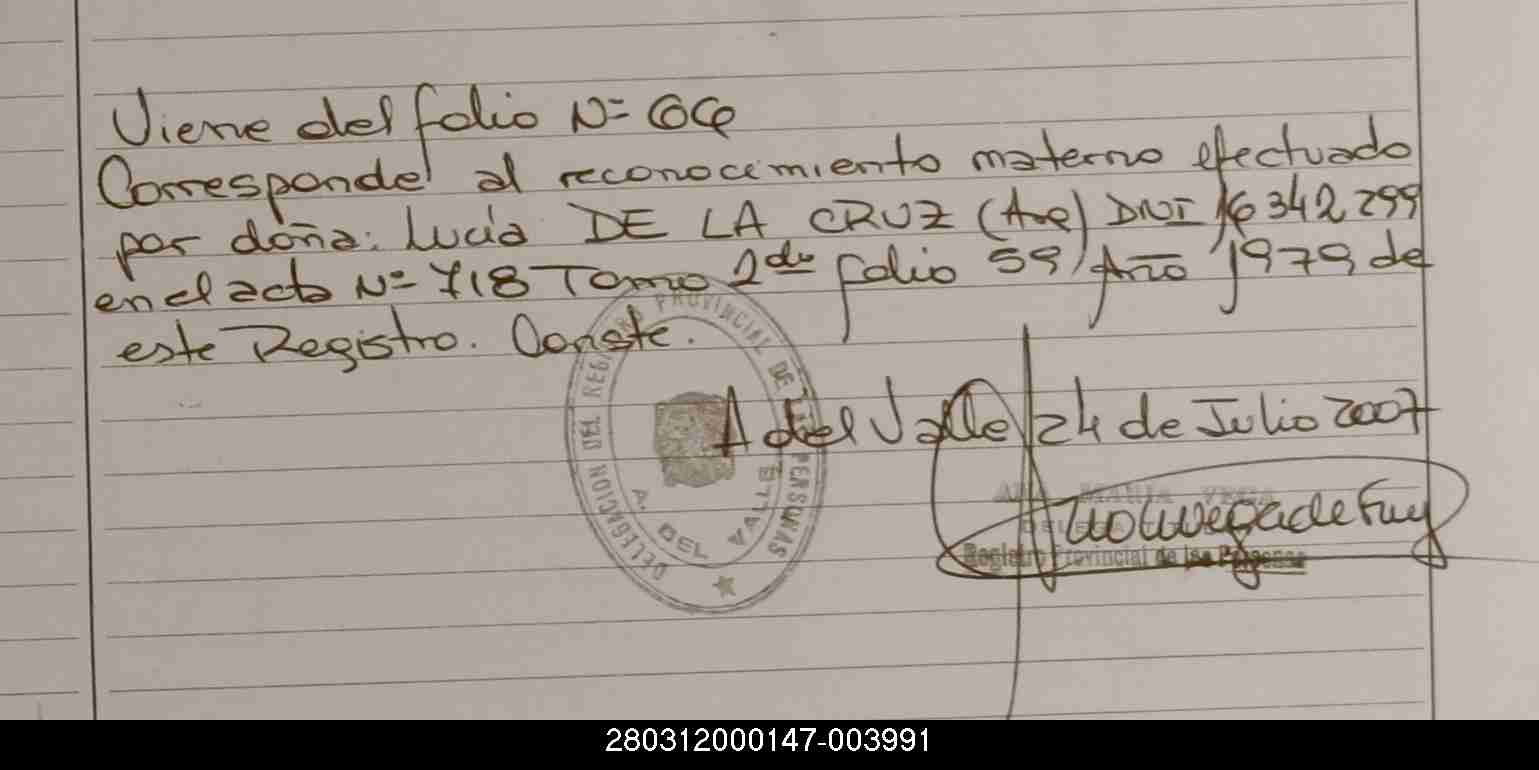 Viene del folio N= 64
Corresponde al reconocimiento materno efectuado
por doña: Lucía DE LA CRUZ (Arg) DNI 16342299
en el acta N= 718 Tomo 2do folio 59 Año 1979 de
este Registro. Conste.
A del Valle 24 de Julio 2007
DELEGACION DEL REGISTRO PROVINCIAL DE PERSONAS
A. DEL VALLE
ANA MARIA VEGA
Registro Provincial de las Personas
280312000147-003991